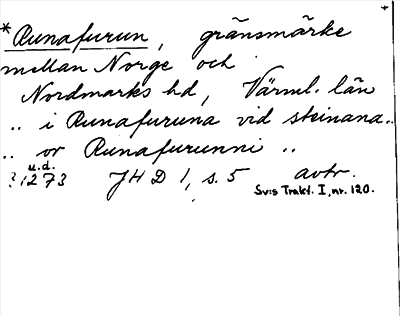 * Runafurun, gränsmärke
mellan Norge och
Nordmarks hd, Värml. län
.. i Runafuruna vid steinana..
.. or Runafurunni ..
u.d.
?1273 JH D 1, s. 5 avtr.
Sv:s Trakt. I, nr. 120.